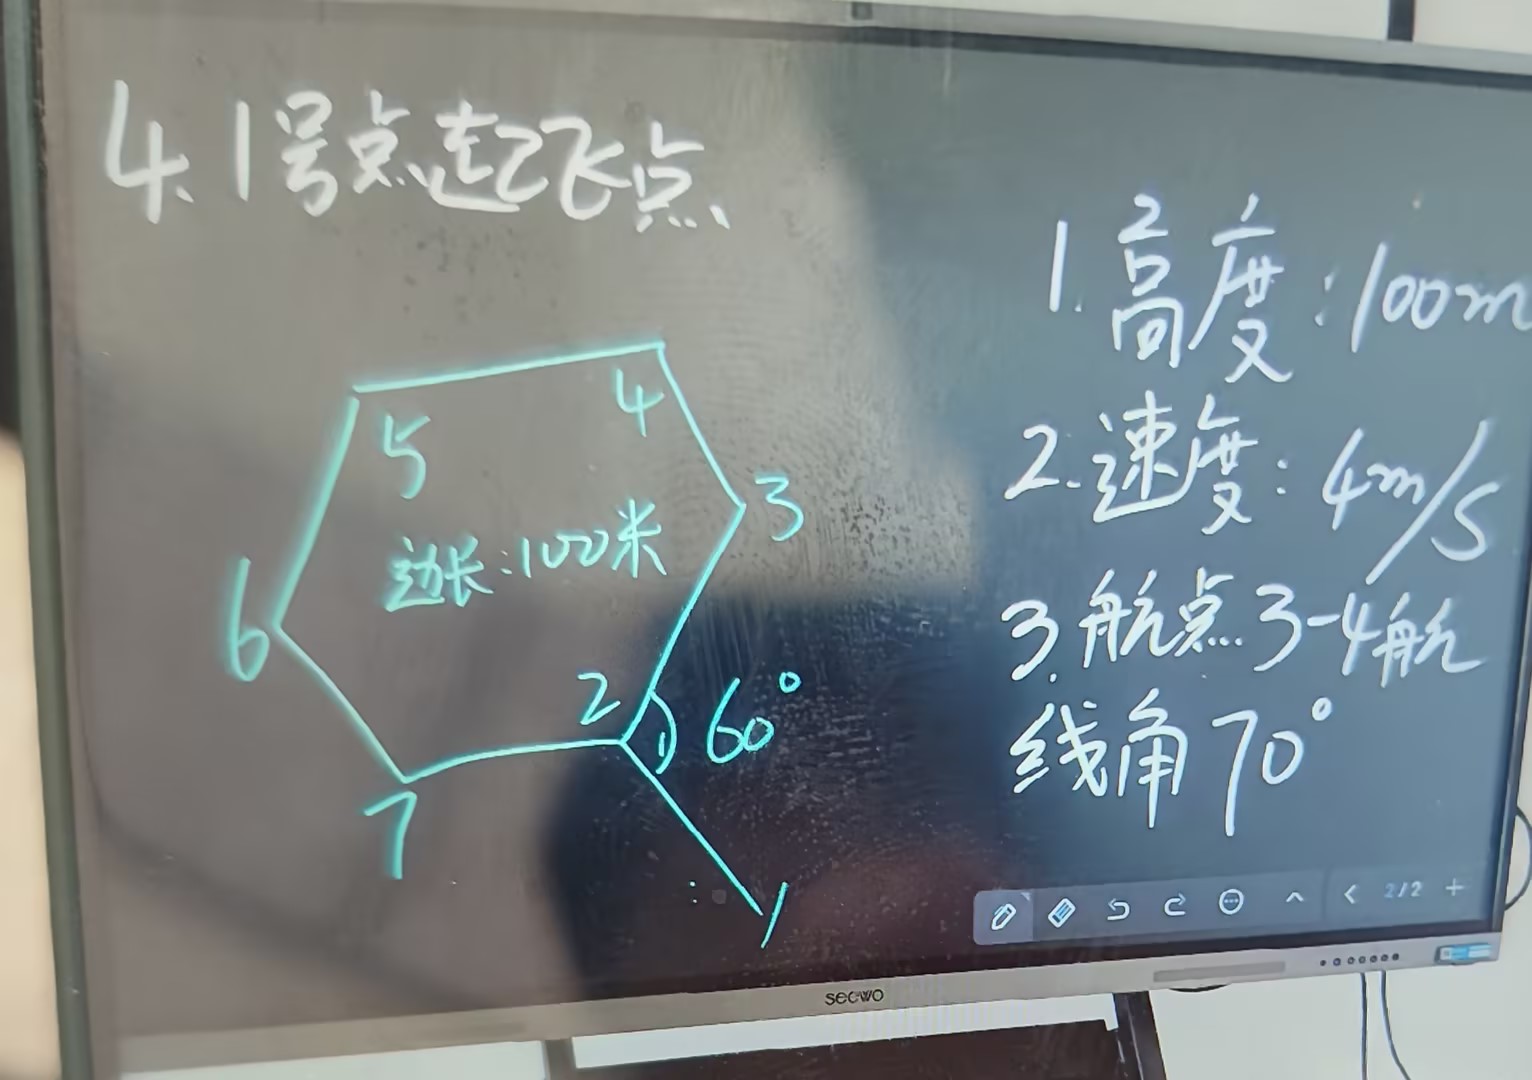 4.1号点起飞点、
1.高度:100m
2.速度:4m/s
3.航点3-4航
线角70°
4
5
3
边长:100米
6
2
60°
7
1
2/2
seewo